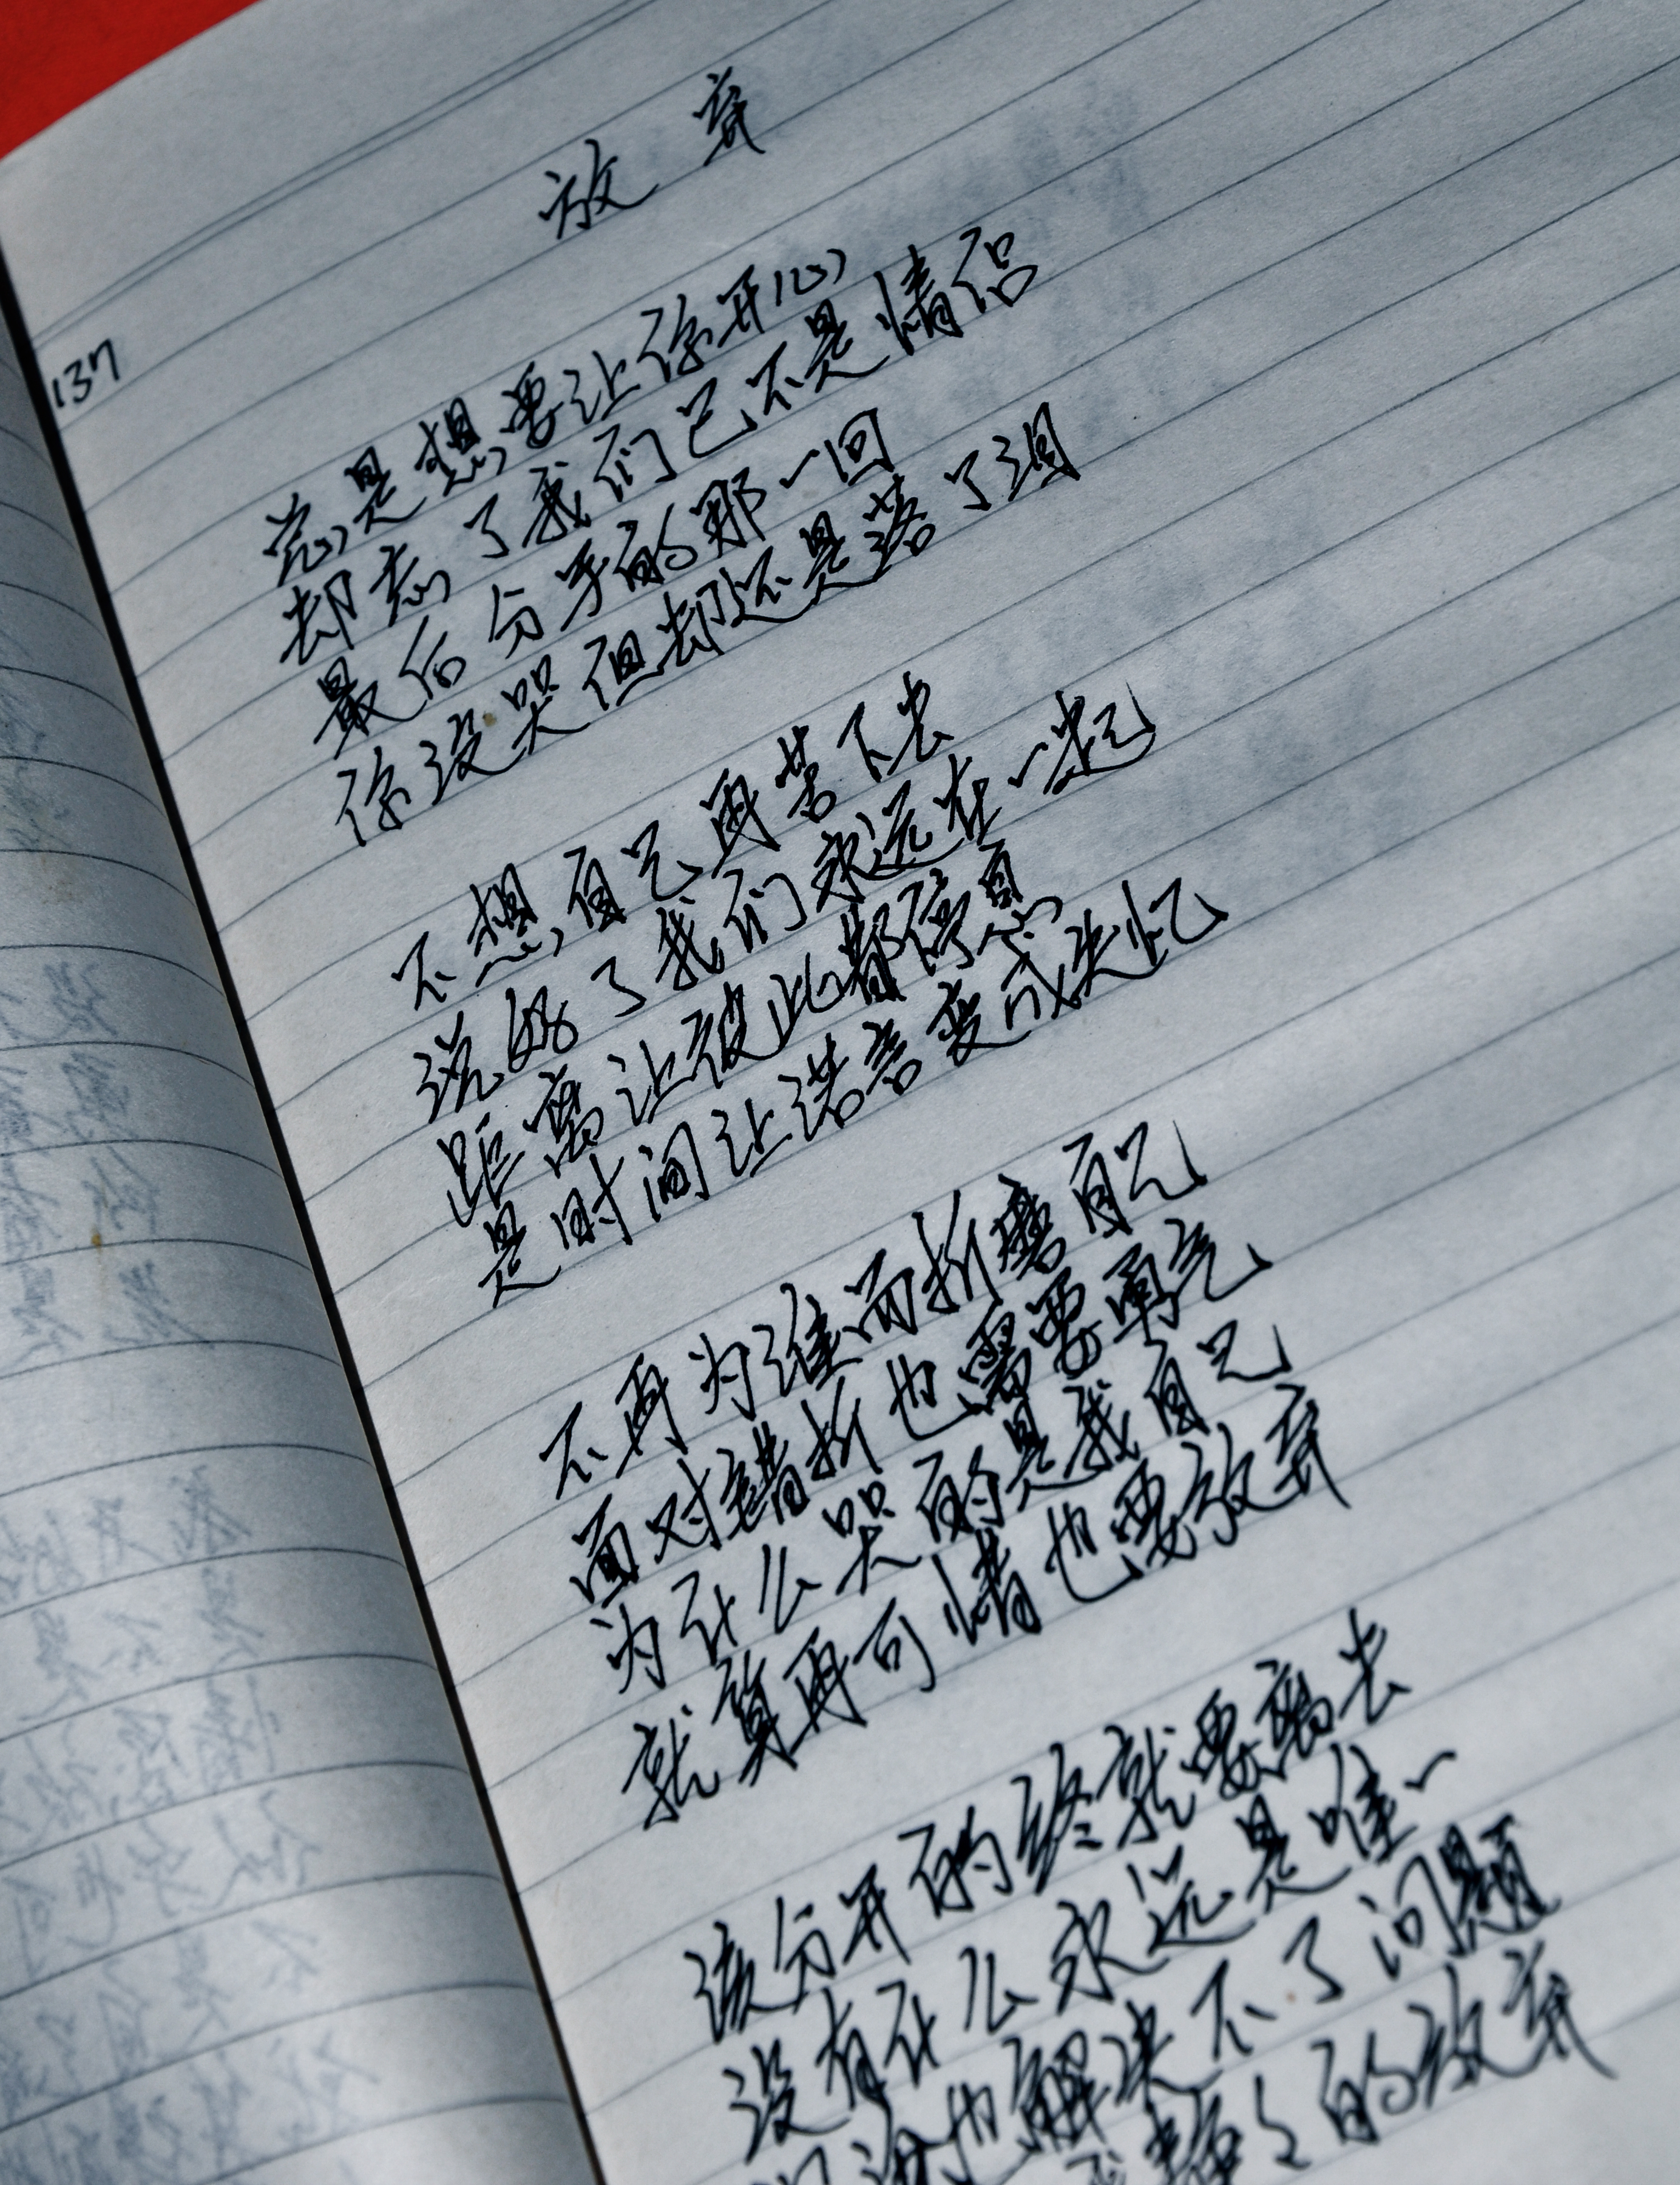 放弃
137
总是想要让你开心
却忘了我们已不是情侣
最后分手的那一回
你没哭但却还是落了泪
不想自己再苦下去
说好了我们永远在一起
距离让彼此都停息
是时间让诺言变成失忆
不再为谁而折磨自己
面对错折也需要勇气
为什么哭的是我自己
就算再可惜也要放弃
该分开的终就要离去
没有什么永远是唯一
也解决不了问题
的放弃